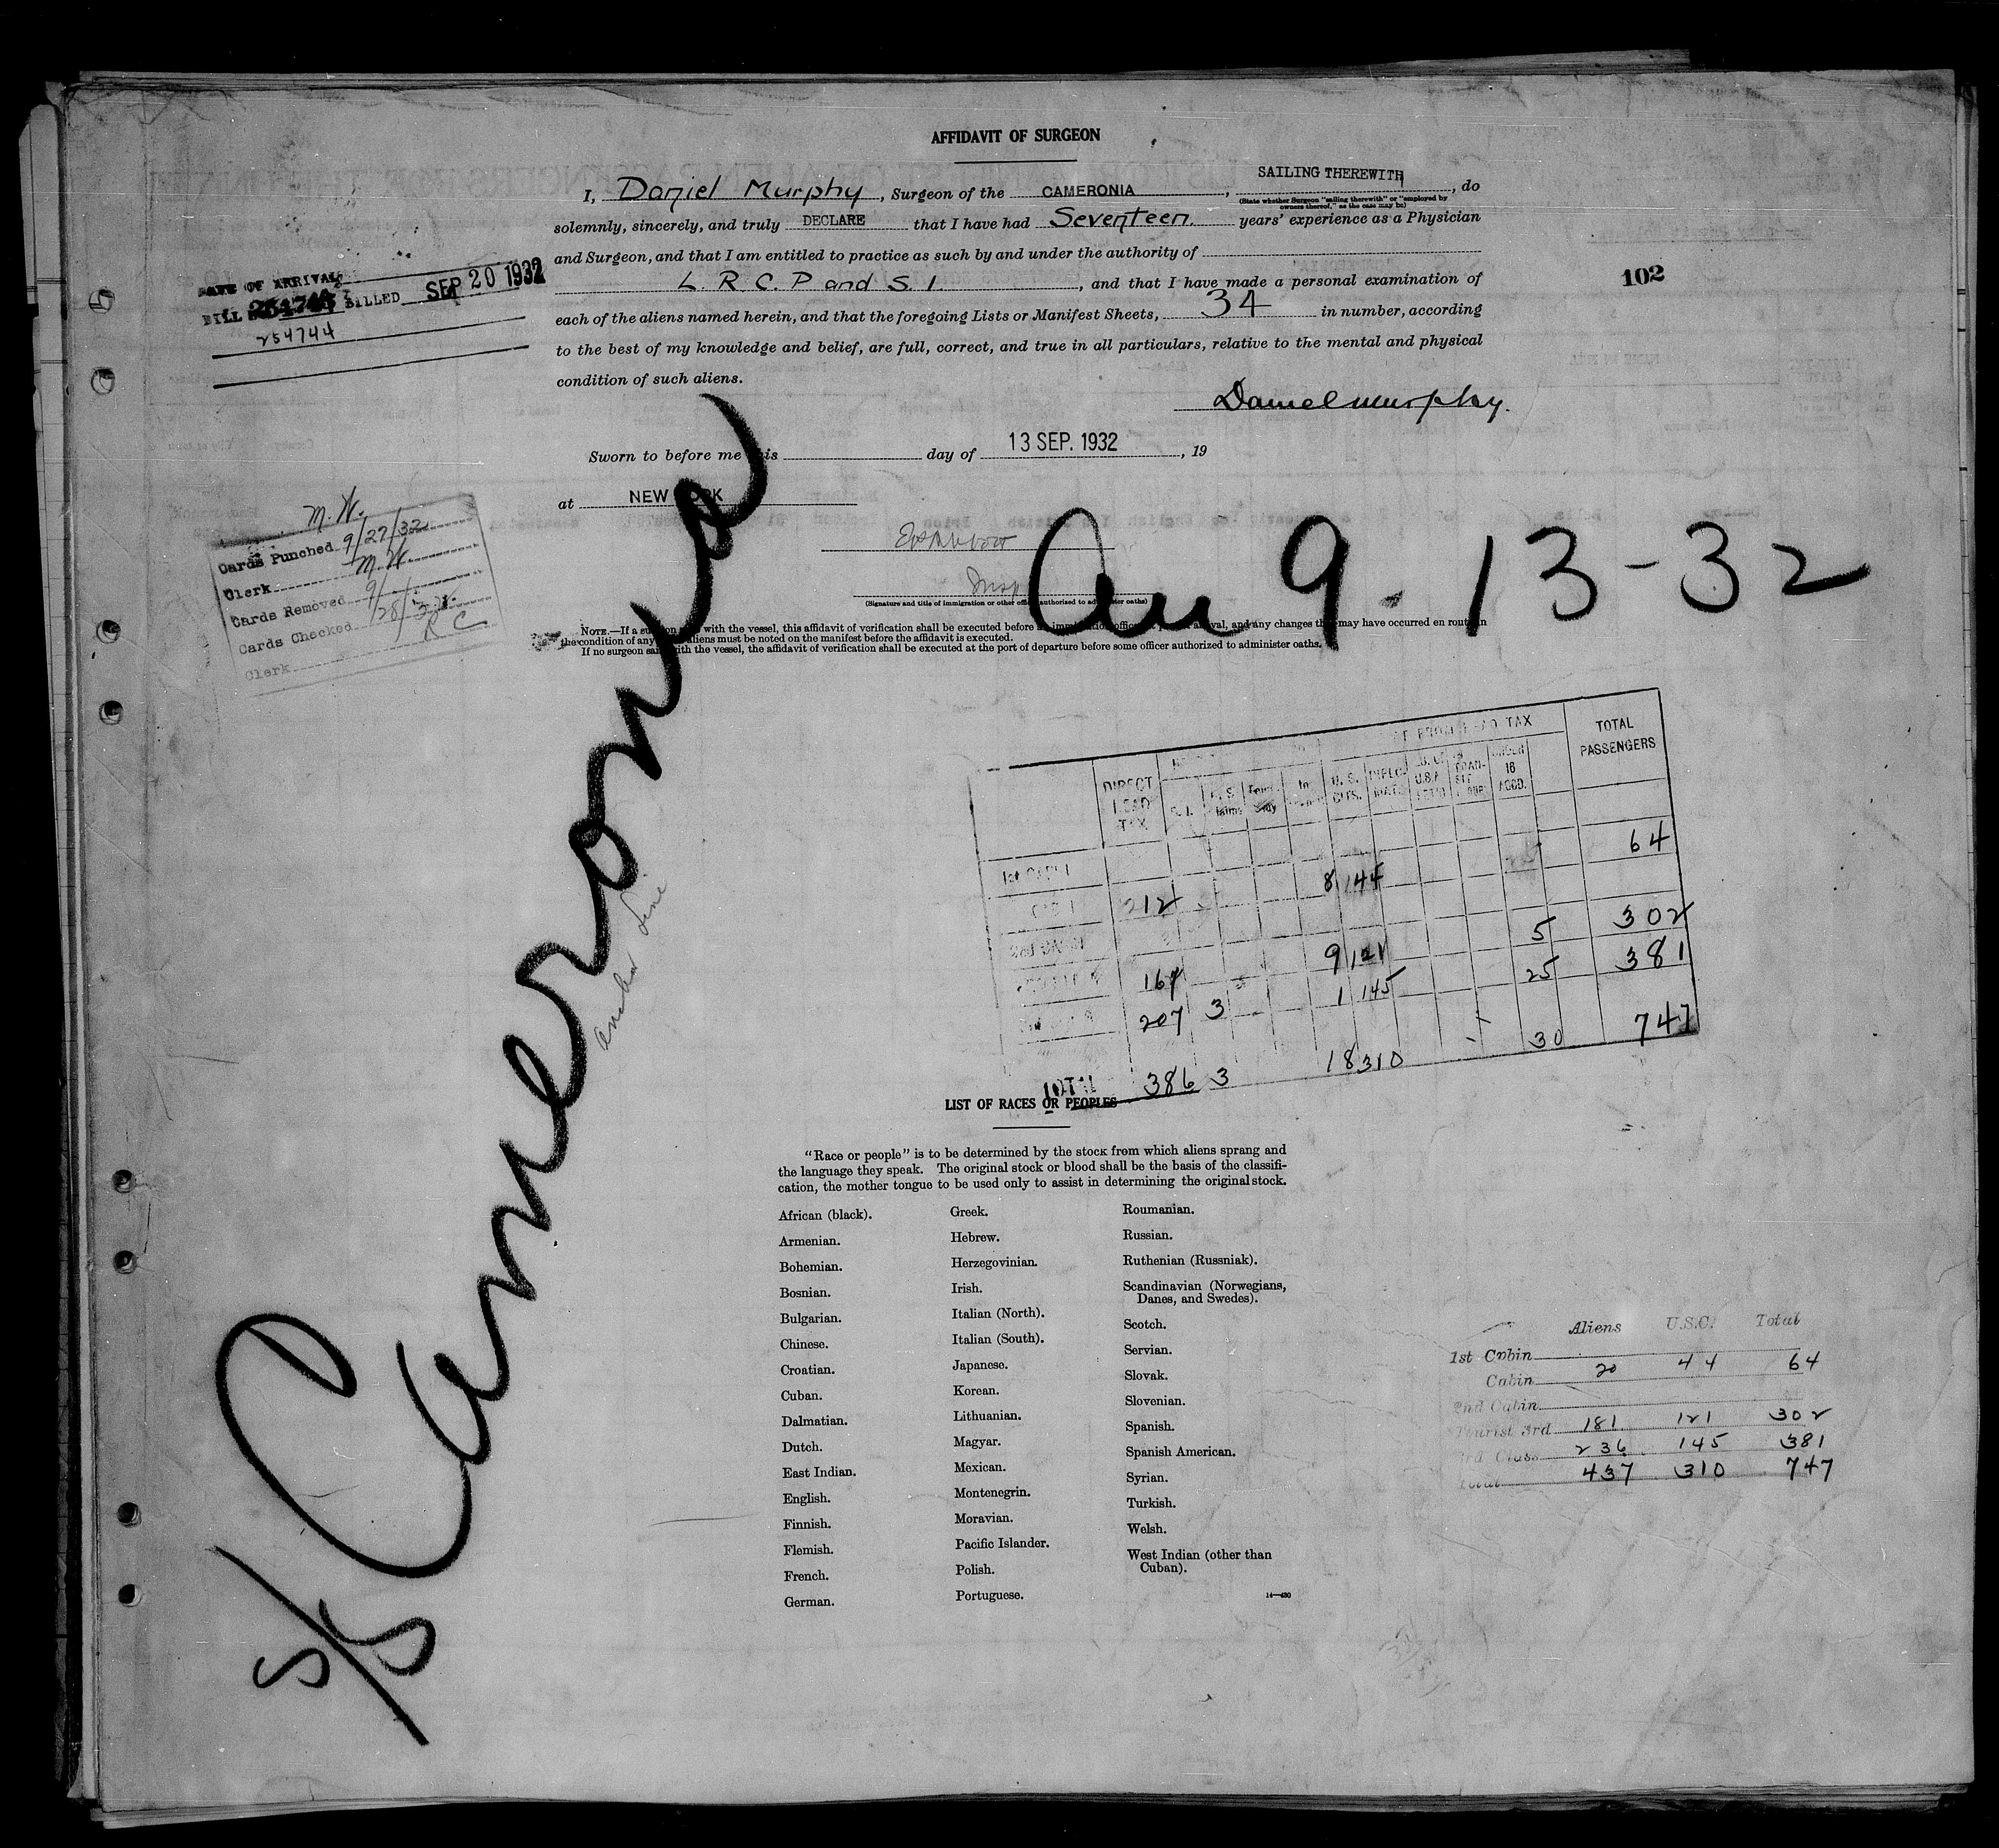 AFFIDAVIT OF SURGEON
I, Daniel Murphy, Surgeon of the CAMERONIA, SAILING THEREWITH, do
(State whether Surgeon "sailing therewith" or "employed by owners thereof," as the case may be)
solemnly, sincerely, and truly DECLARE that I have had Seventeen years' experience as a Physician
and Surgeon, and that I am entitled to practice as such by and under the authority of
L. R. C. P and S. I., and that I have made a personal examination of
each of the aliens named herein, and that the foregoing Lists or Manifest Sheets, 34 in number, according
to the best of my knowledge and belief, are full, correct, and true in all particulars, relative to the mental and physical
condition of such aliens.
Daniel Murphy.
102
DATE OF ARRIVAL
BILL BILLED SEP 20 1932
254744
Sworn to before me this day of 13 SEP. 1932, 19
at NEW YORK
Insp
(Signature and title of immigration or other officer authorized to administer oaths)
M. W.
Cards Punched 9/27/32
Clerk M. W.
Cards Removed 9/28/32
Cards Checked R C
Clerk
9-13-32
NOTE.—If a surgeon sails with the vessel, this affidavit of verification shall be executed before an immigration officer at arrival, and any changes that may have occurred en route in
the condition of any aliens must be noted on the manifest before the affidavit is executed.
If no surgeon sails with the vessel, the affidavit of verification shall be executed at the port of departure before some officer authorized to administer oaths.
S/S Cameronia
Anchor Line
DIRECT HEAD TAX U. S. CITS. UNDER 16 ACCD. TOTAL PASSENGERS
1st CABIN
64
212 8 44
5 302
167 9 121
25 381
207 3 1 145
TOTAL 386 3 18 310 30 747
LIST OF RACES OR PEOPLES
"Race or people" is to be determined by the stock from which aliens sprang and
the language they speak. The original stock or blood shall be the basis of the classifi-
cation, the mother tongue to be used only to assist in determining the original stock.
African (black).
Armenian.
Bohemian.
Bosnian.
Bulgarian.
Chinese.
Croatian.
Cuban.
Dalmatian.
Dutch.
East Indian.
English.
Finnish.
Flemish.
French.
German.
Greek.
Hebrew.
Herzegovinian.
Irish.
Italian (North).
Italian (South).
Japanese.
Korean.
Lithuanian.
Magyar.
Mexican.
Montenegrin.
Moravian.
Pacific Islander.
Polish.
Portuguese.
Roumanian.
Russian.
Ruthenian (Russniak).
Scandinavian (Norwegians,
Danes, and Swedes).
Scotch.
Servian.
Slovak.
Slovenian.
Spanish.
Spanish American.
Syrian.
Turkish.
Welsh.
West Indian (other than
Cuban).
14—430
Aliens U.S.C. Total
1st Cabin
Cabin 20 44 64
2nd Cabin
Tourist 3rd 181 121 302
3rd Class 236 145 381
Total 437 310 747